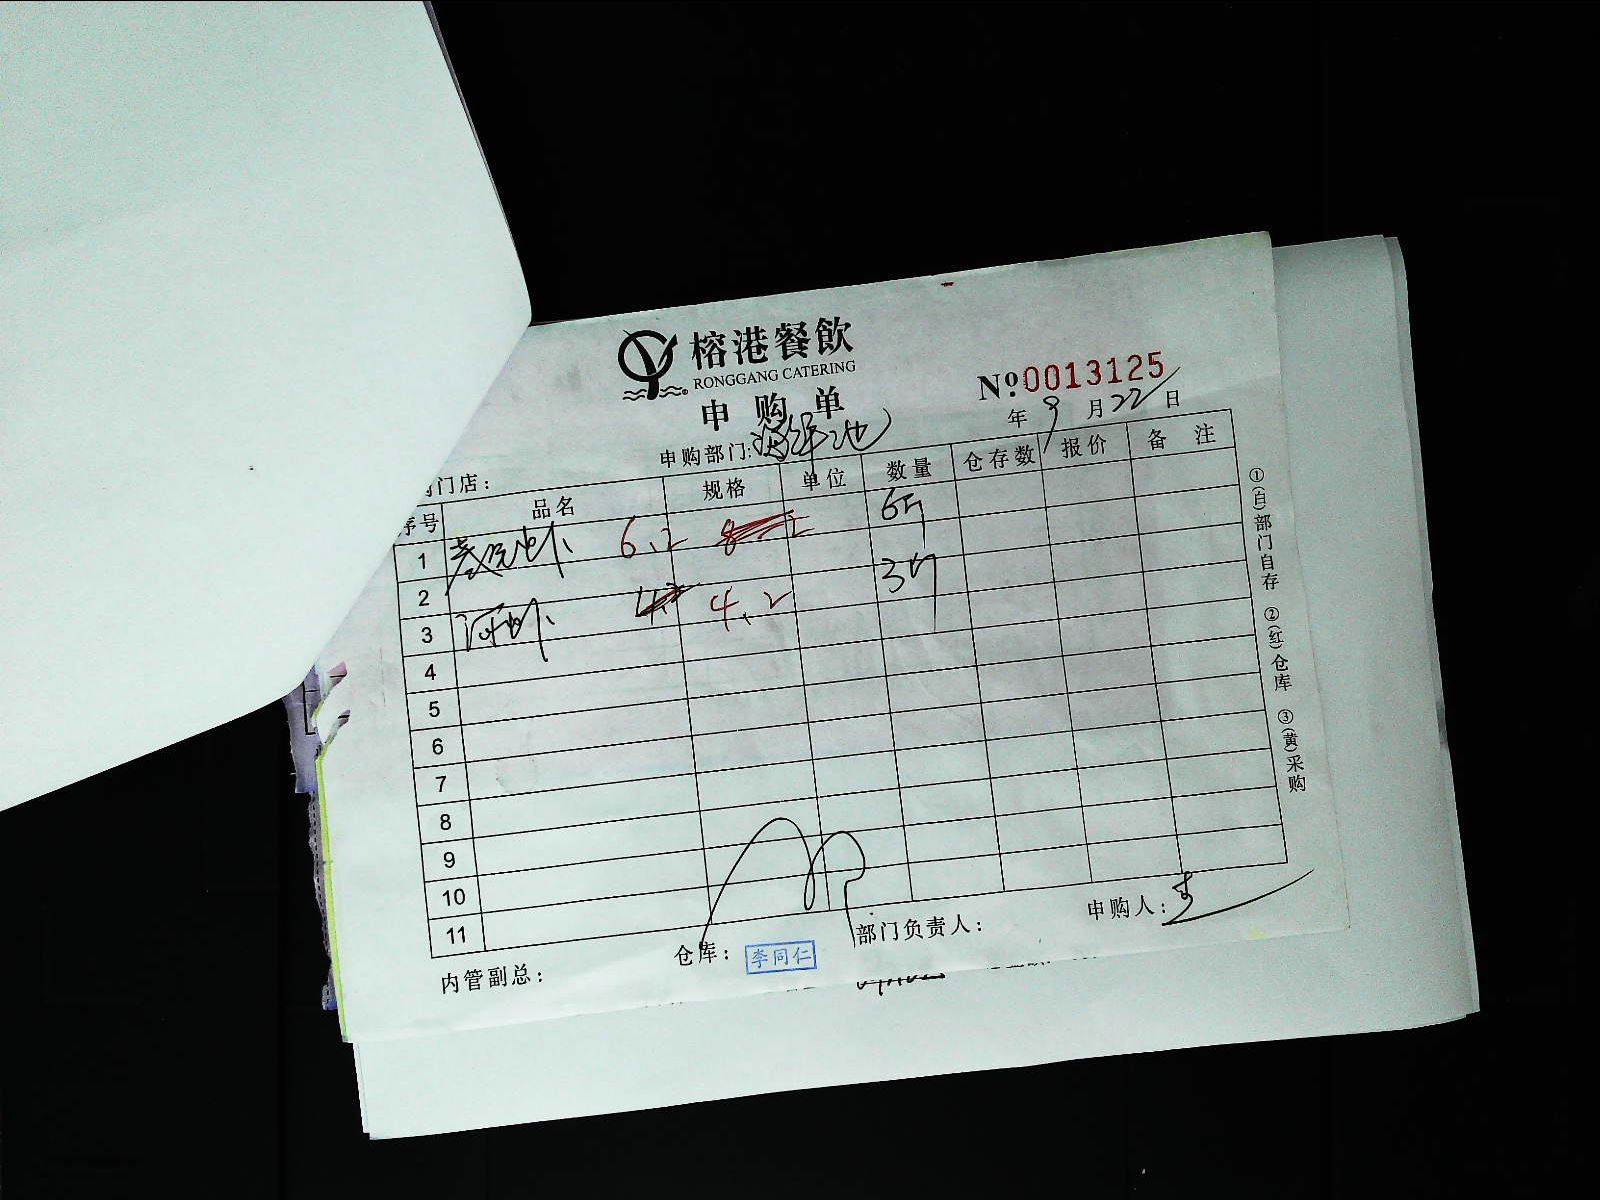 榕港餐飲
RONGGANG CATERING
申购单
No.0013125
年9月22日
申购部门:海鲜池
门店：
序号 品名 规格 单位 数量 仓存数 报价 备注
1 基围虾 6.2 6斤
2 3斤
3 河虾 4.2
4
5
6
7
8
9
10
11
①(白)部门自存 ②(红)仓库 ③(黄)采购
内管副总： 仓库：李同仁 部门负责人： 申购人：